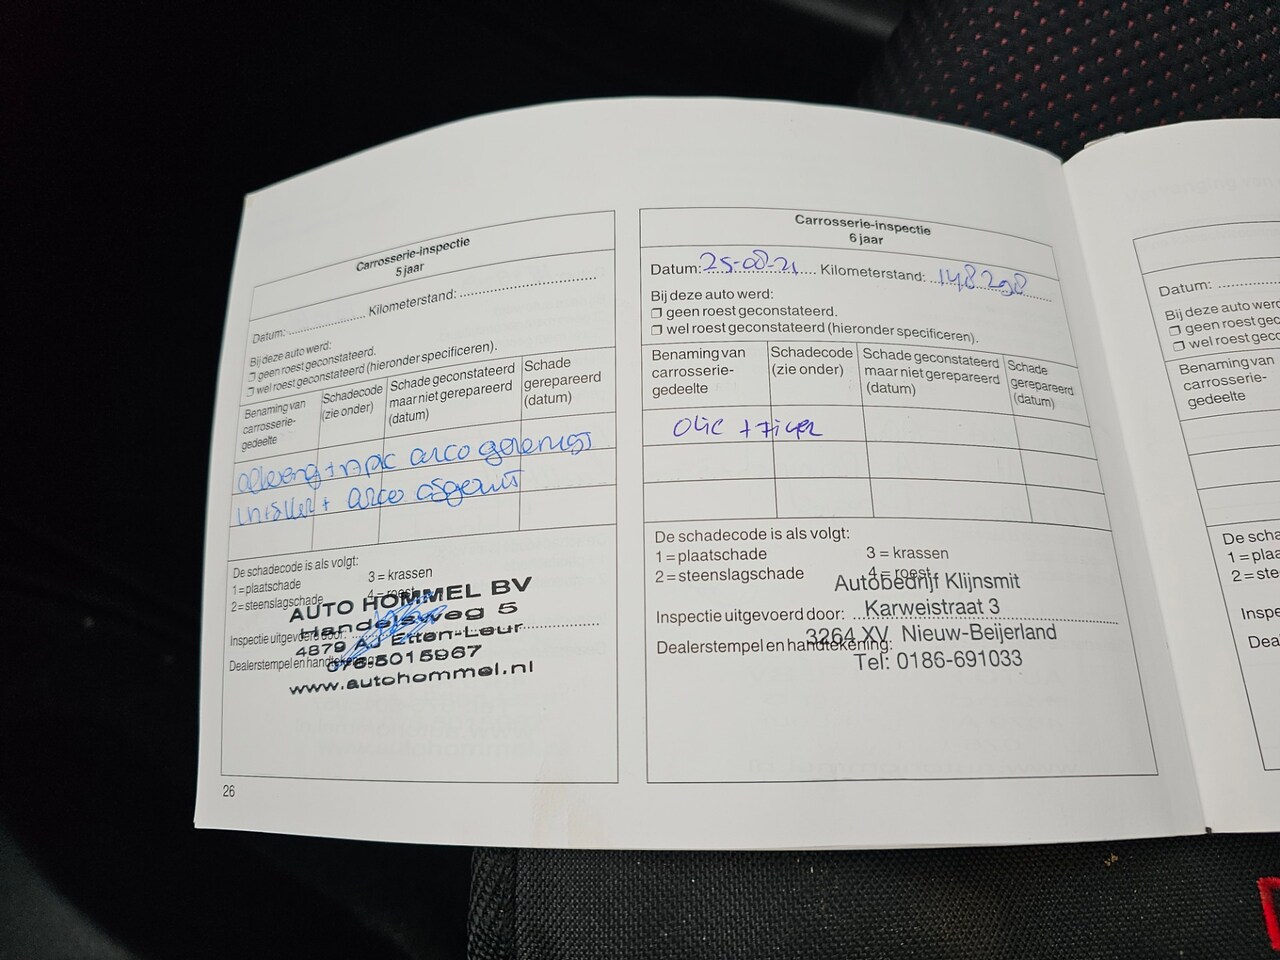 Carrosserie-inspectie
5 jaar
Datum: Kilometerstand:
Bij deze auto werd:
❒ geen roest geconstateerd.
❒ wel roest geconstateerd (hieronder specificeren).
Benaming van carrosserie-gedeelte
Schadecode (zie onder)
Schade geconstateerd maar niet gerepareerd (datum)
Schade gerepareerd (datum)
airco
+ airco
De schadecode is als volgt:
1 = plaatschade 3 = krassen
2 = steenslagschade 4 = roest
Inspectie uitgevoerd door:
Dealerstempel en handtekening:
AUTO HOMMEL BV
Handelsweg 5
4879 AJ Etten-Leur
076-5015967
www.autohommel.nl
26
Carrosserie-inspectie
6 jaar
Datum: 25-08-21 Kilometerstand: 148298
Bij deze auto werd:
❒ geen roest geconstateerd.
❒ wel roest geconstateerd (hieronder specificeren).
Benaming van carrosserie-gedeelte
Schadecode (zie onder)
Schade geconstateerd maar niet gerepareerd (datum)
Schade gerepareerd (datum)
Olie + filter
De schadecode is als volgt:
1 = plaatschade 3 = krassen
2 = steenslagschade 4 = roest
Inspectie uitgevoerd door:
Dealerstempel en handtekening:
Autobedrijf Klijnsmit
Karweistraat 3
3264 XV Nieuw-Beijerland
Tel: 0186-691033
Datum:
Bij deze auto werd:
❒ geen roest
❒ wel roest
Benaming van carrosserie-gedeelte
De
1 =
2 =